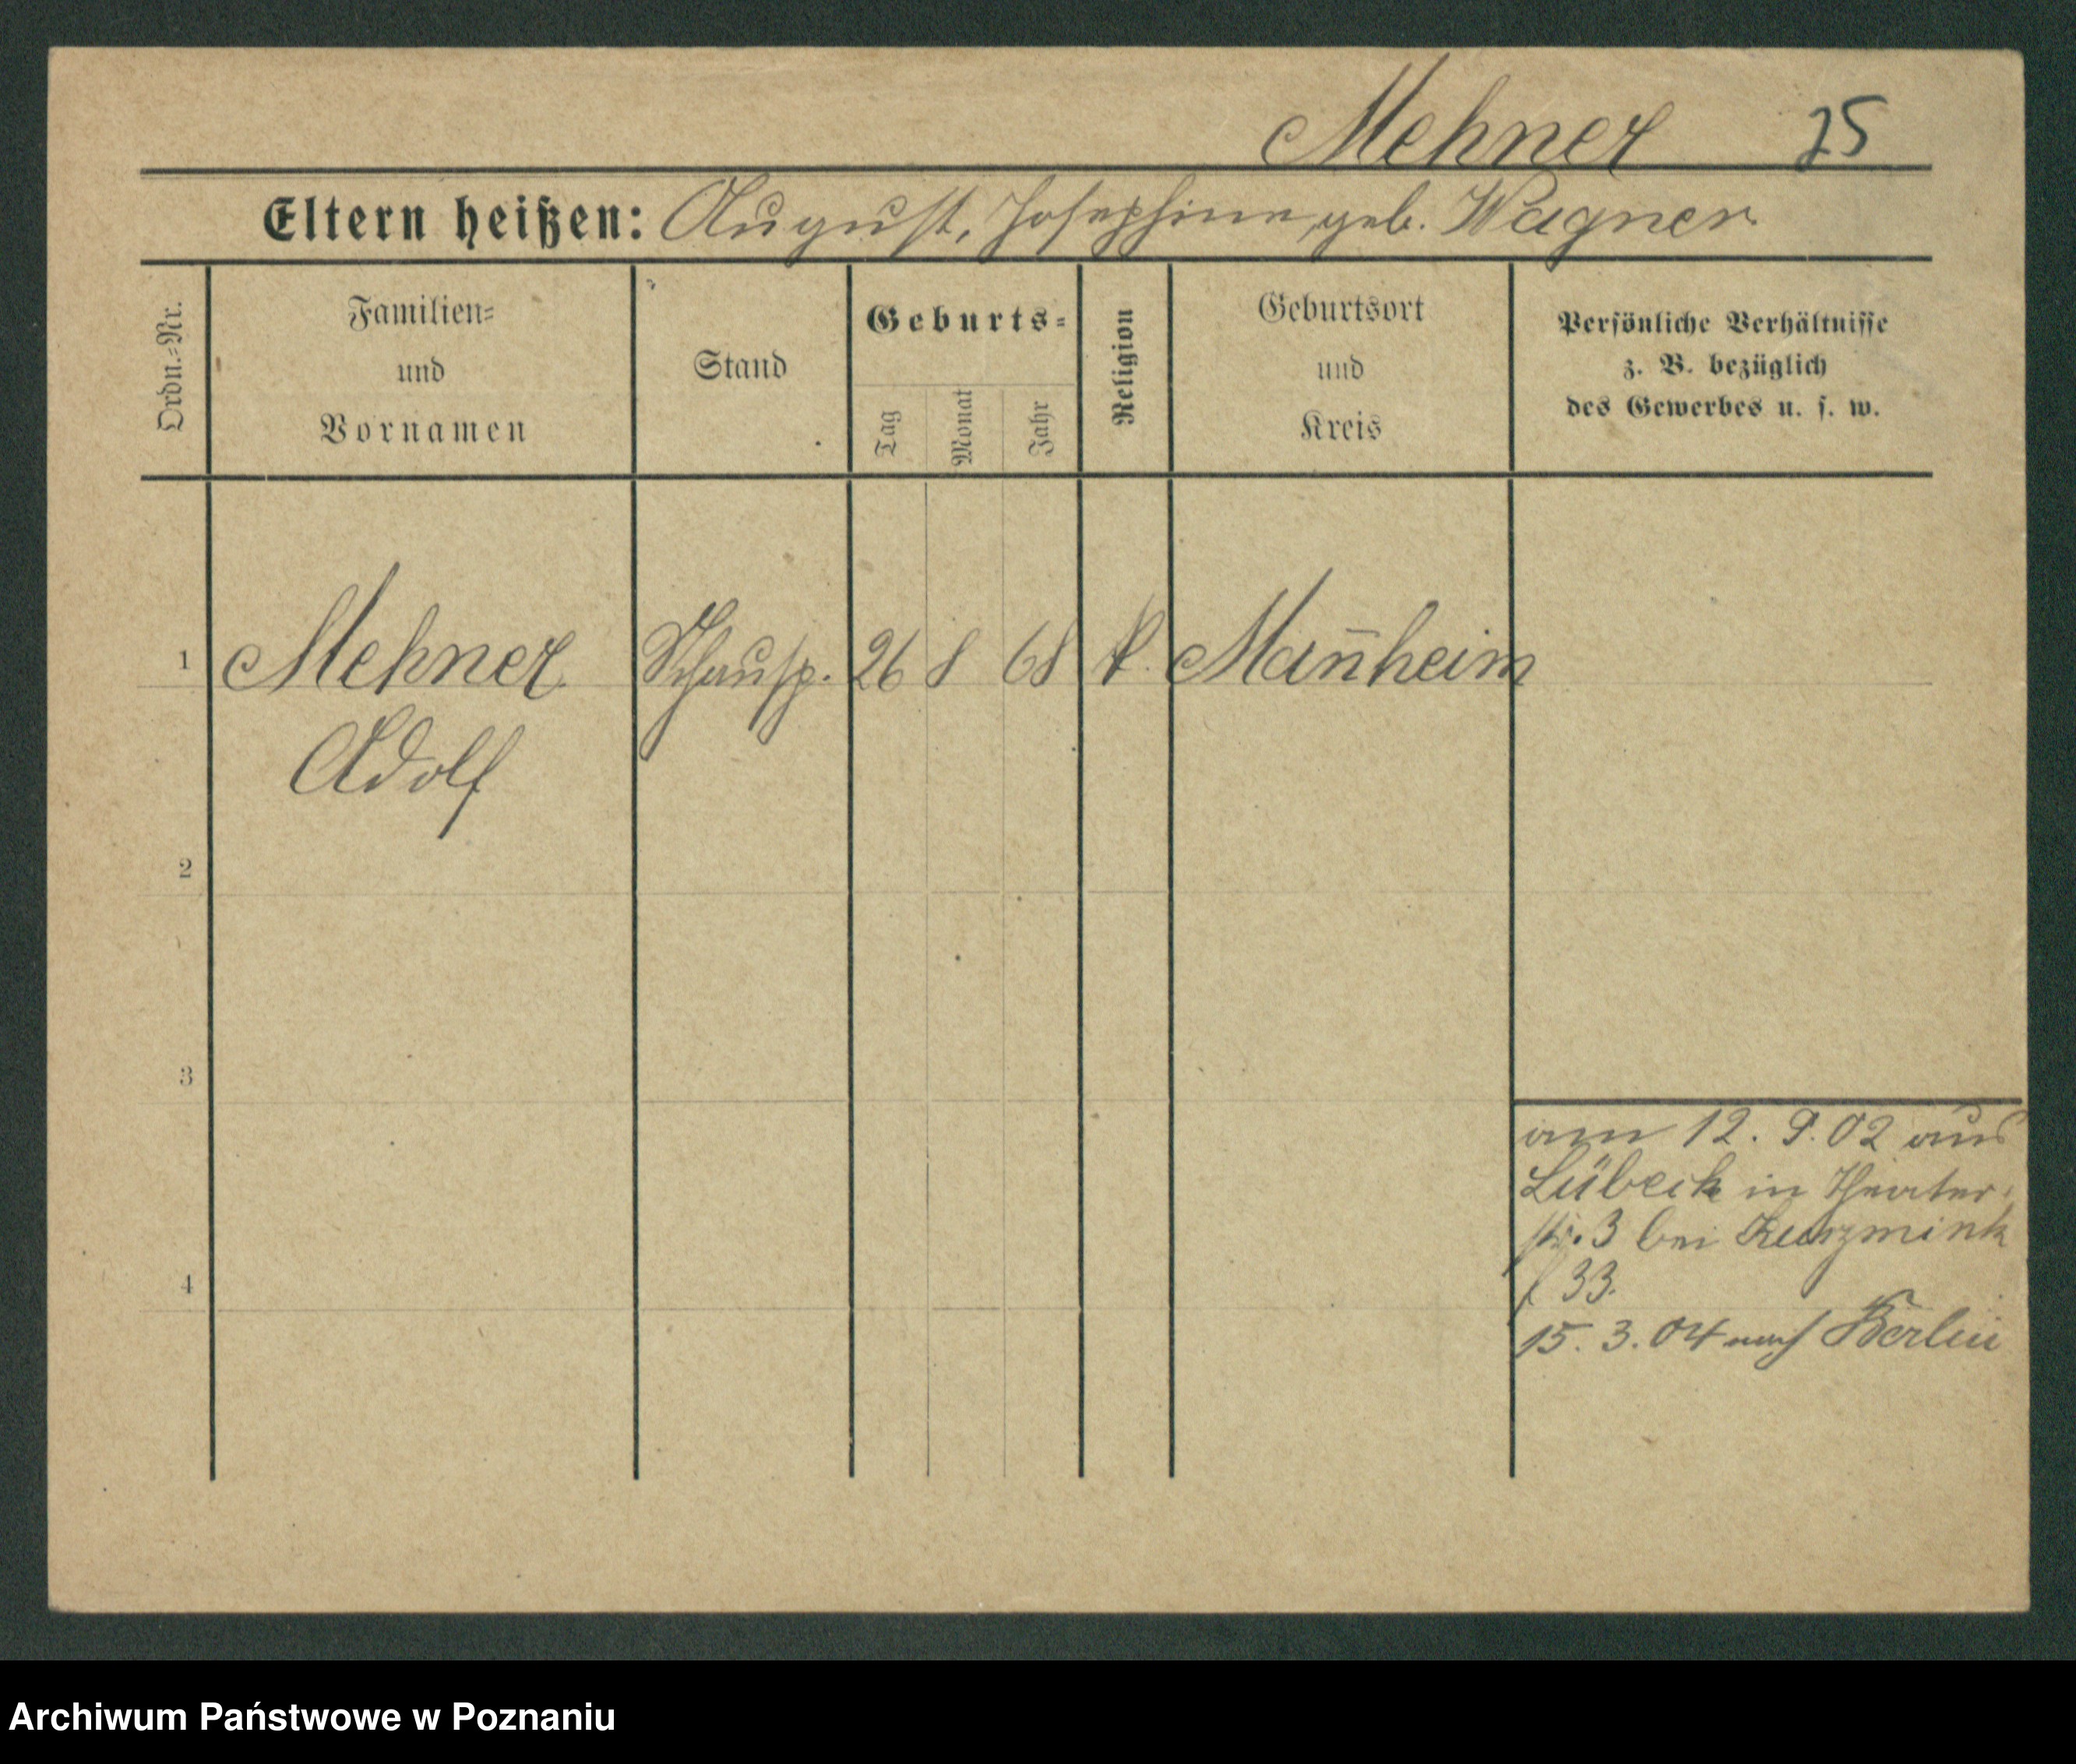 Mehner 25
Eltern heißen: August, Josephine, geb. Wagner
Ordn.-Nr.
Familien-
und
Vornamen
Stand
Geburts-
Tag
Monat
Jahr
Religion
Geburtsort
und
Kreis
Persönliche Verhältnisse
z. B. bezüglich
des Gewerbes u. s. w.
1 Mehner Schausp. 26 8 68 k. Man̄heim
Adolf
2
3
4
am 12. 9. 02 aus
Lübeck in Theater-
str. 3 bei Kurzmink
f 33.
15. 3. 04 nach Berlin
Archiwum Państwowe w Poznaniu